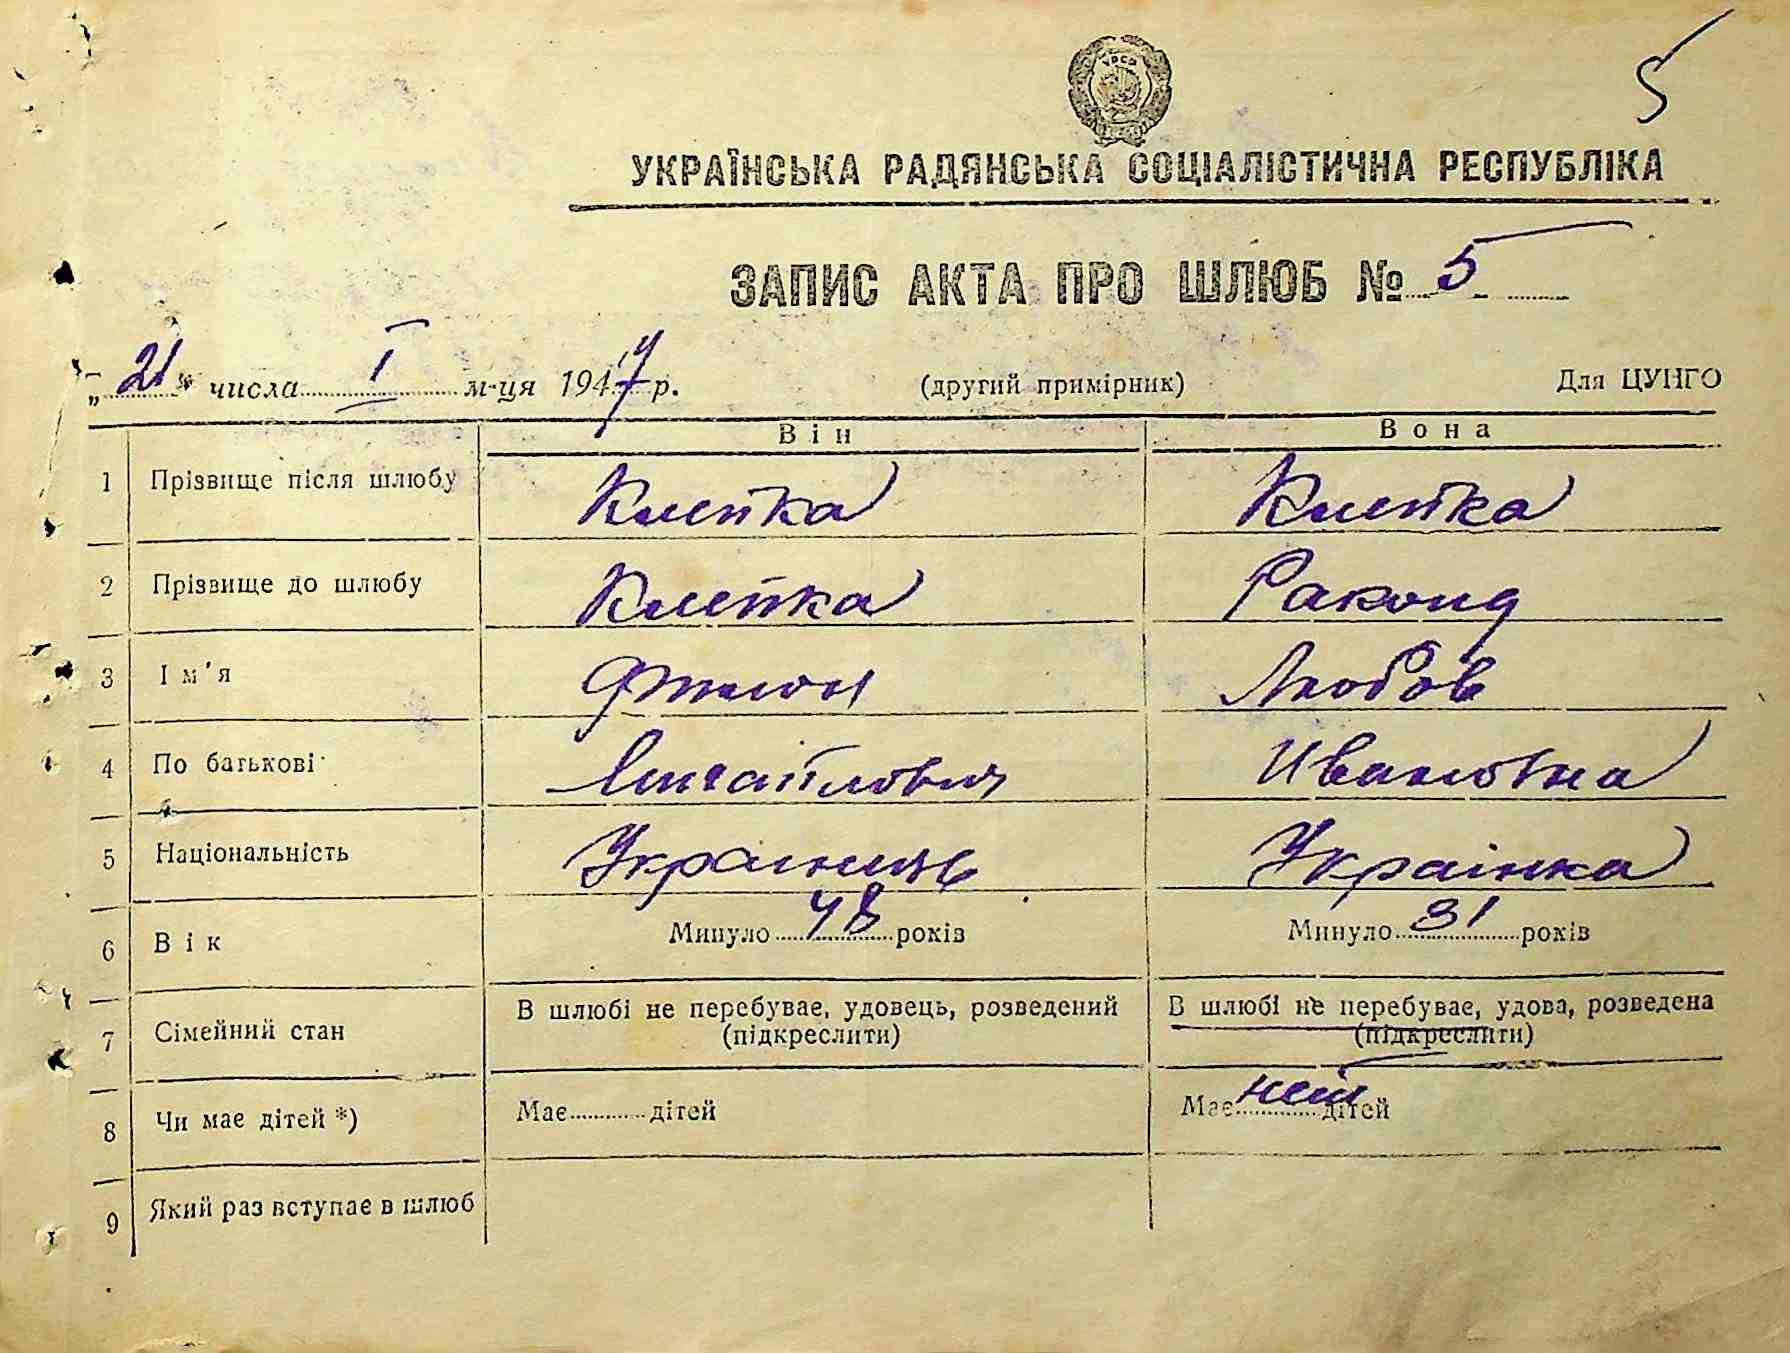 5
УРСР
УКРАЇНСЬКА РАДЯНСЬКА СОЦІАЛІСТИЧНА РЕСПУБЛІКА
ЗАПИС АКТА ПРО ШЛЮБ № 5
„21“ числа I м-ця 1947 р. (другий примірник) Для ЦУНГО
Він Вона
1 Прізвище після шлюбу Клепка Клепка
2 Прізвище до шлюбу Клепка
3 Ім'я Филион Любов
4 По батькові Михайлович Ивановна
5 Національність Украинец Украінка
6 Вік Минуло 48 років Минуло 31 років
7 Сімейний стан В шлюбі не перебуває, удовець, розведений (підкреслити) В шлюбі не перебуває, удова, розведена (підкреслити)
8 Чи має дітей *) Має дітей Має нет дітей
9 Який раз вступає в шлюб